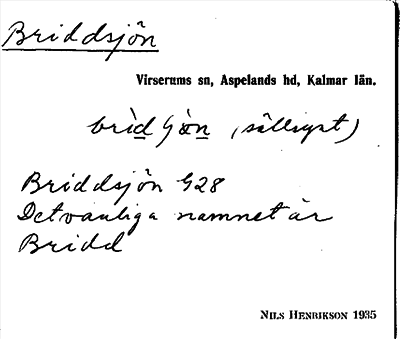 Briddsjön
Virserums sn, Aspelands hd, Kalmar län.
(sällsynt)
Briddsjön G28
Det vanliga namnet är
Bridd
NILS HENRIKSON 1935